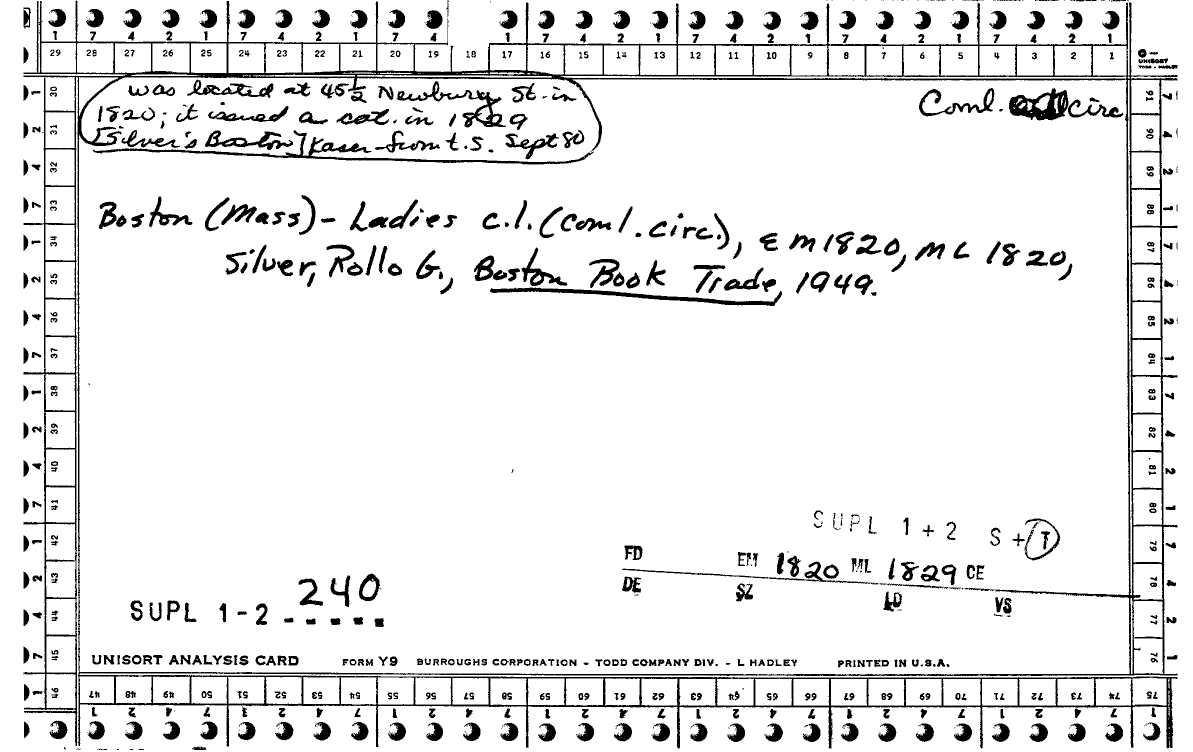 1 7 4 2 1 7 4 2 1 7 4 1 7 4 2 1 7 4 2 1 7 4 2 1
29 28 27 26 25 24 23 22 21 20 19 18 17 16 15 14 13 12 11 10 9 8 7 6 5 4 3 2 1
UNISORT
TODD - HADLEY
was located at 45½ Newbury St. in
1820; it issued a cat. in 1829
[Silver's Boston] Kaser-from t.s. Sept 80
Coml. circ.
Boston (Mass)- Ladies c.l. (coml. circ.), EM 1820, ML 1820,
Silver, Rollo G., Boston Book Trade, 1949.
SUPL 1+2 S+T
FD EM 1820 ML 1829 CE
DE SZ LD VS
SUPL 1-2 240
UNISORT ANALYSIS CARD FORM Y9 BURROUGHS CORPORATION - TODD COMPANY DIV. - L HADLEY PRINTED IN U.S.A.
30 31 32 33 34 35 36 37 38 39 40 41 42 43 44 45 46
91 90 89 88 87 86 85 84 83 82 81 80 79 78 77 76 75
47 48 49 50 51 52 53 54 55 56 57 58 59 60 61 62 63 64 65 66 67 68 69 70 71 72 73 74 75
1 2 4 7 1 2 4 7 1 2 4 7 1 2 4 7 1 2 4 7 1 2 4 7 1 2 4 7 1